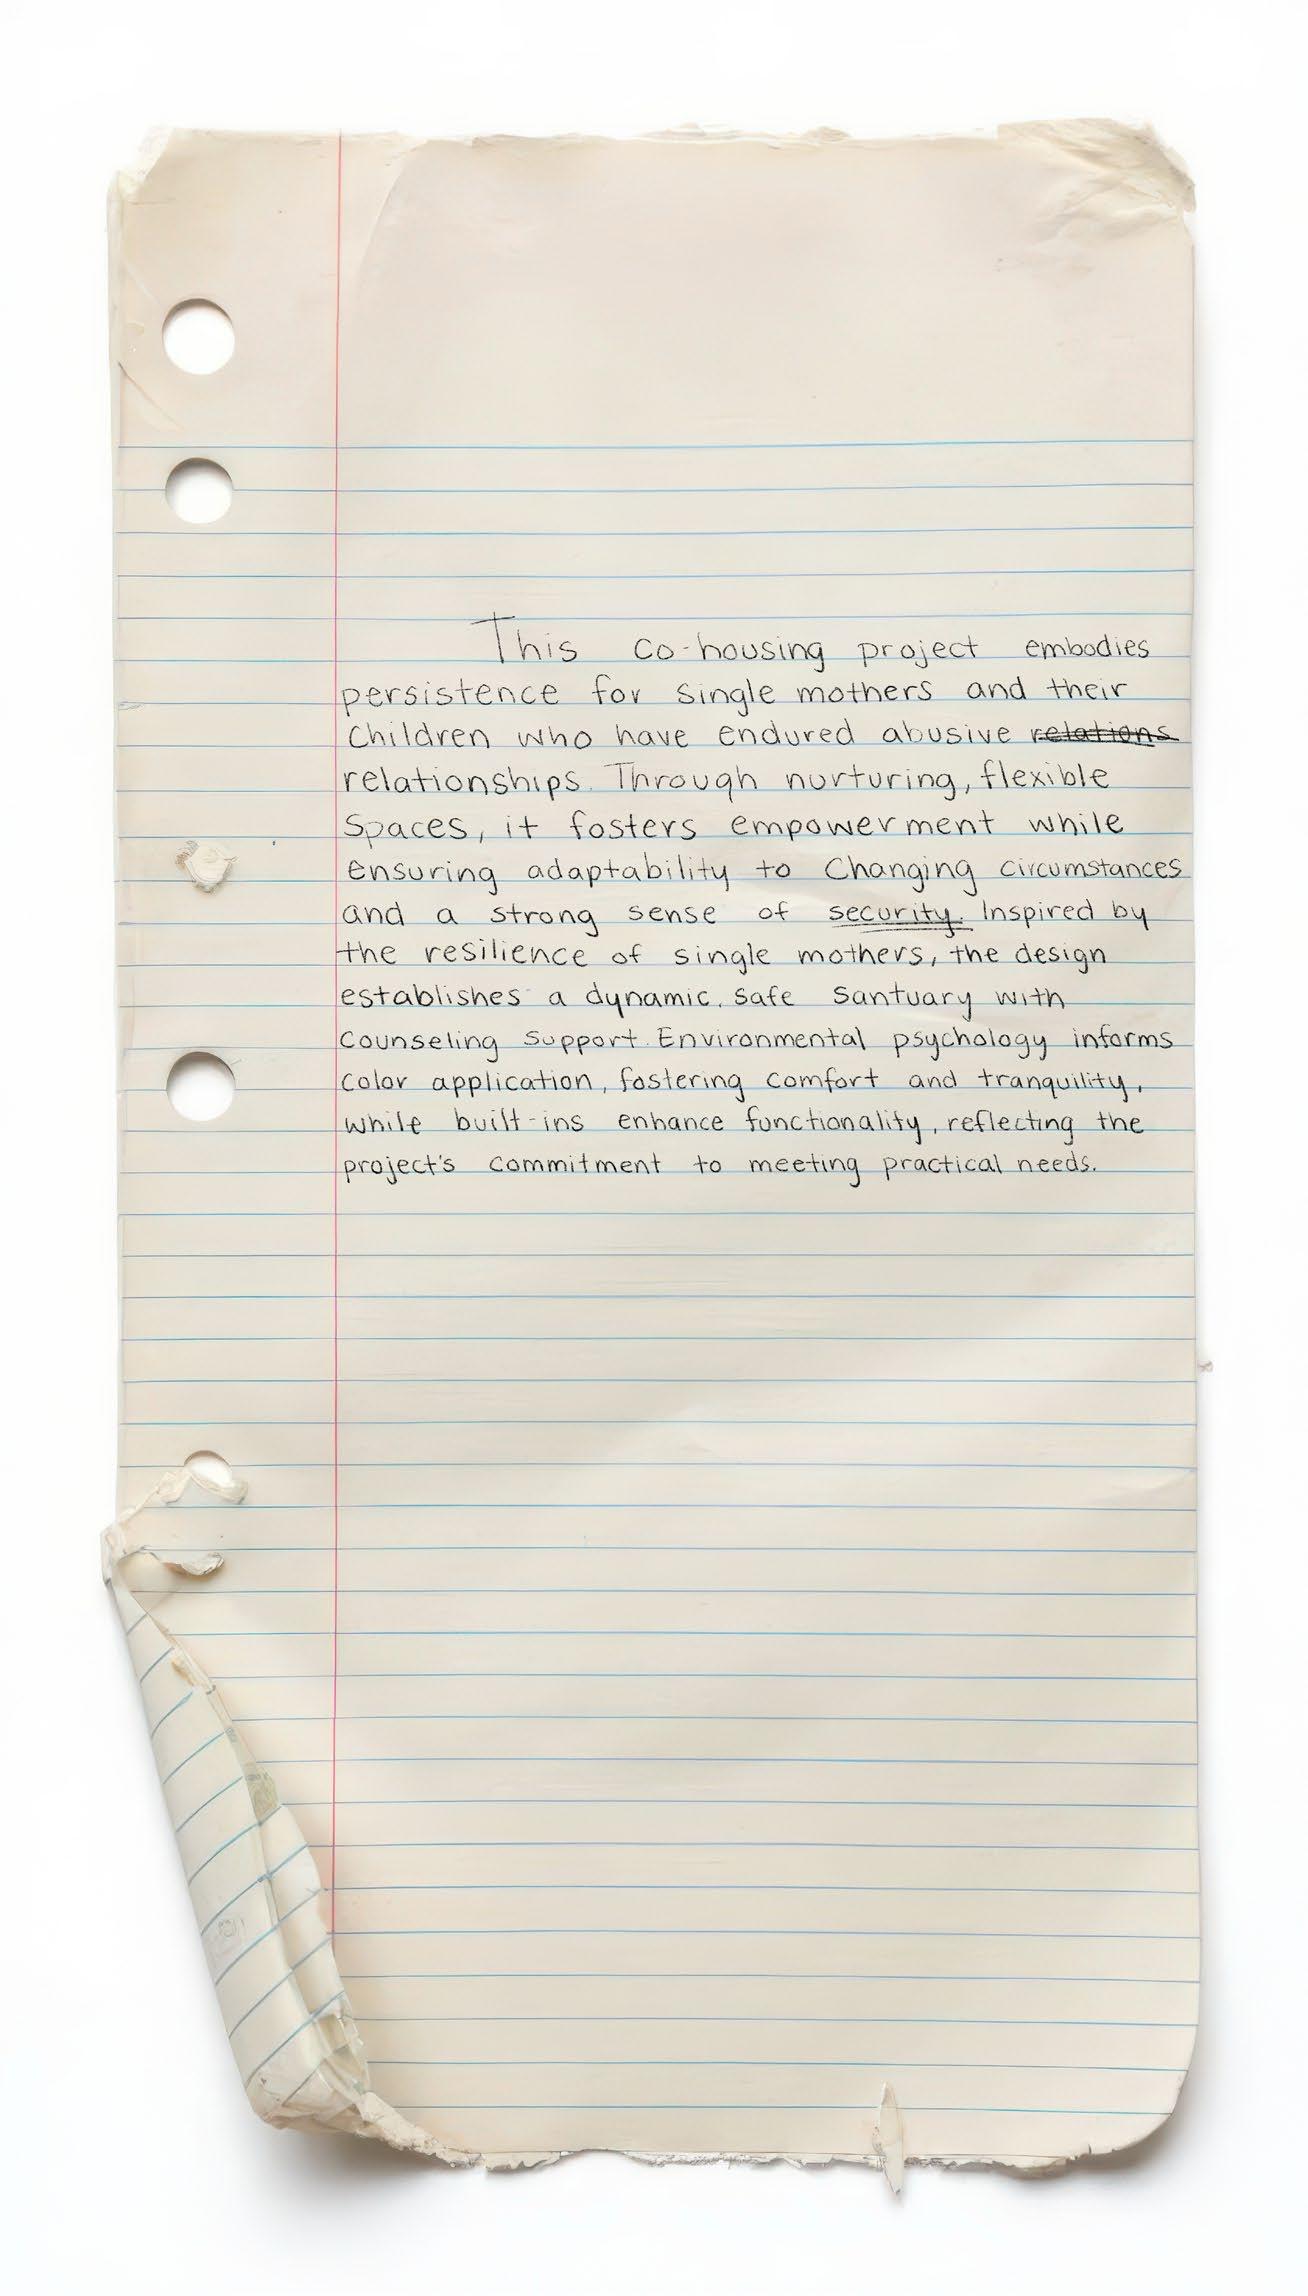 This co-housing project embodies
persistence for single mothers and their
Children who have endured abusive relations
relationships. Through nurturing, flexible
Spaces, it fosters empowerment while
ensuring adaptability to Changing circumstances
and a strong sense of security. Inspired by
the resilience of single mothers, the design
establishes a dynamic, safe Santuary with
Counseling Support. Environmental psychology informs
Color application, fostering comfort and tranquility,
while built-ins enhance functionality, reflecting the
project's commitment to meeting practical needs.